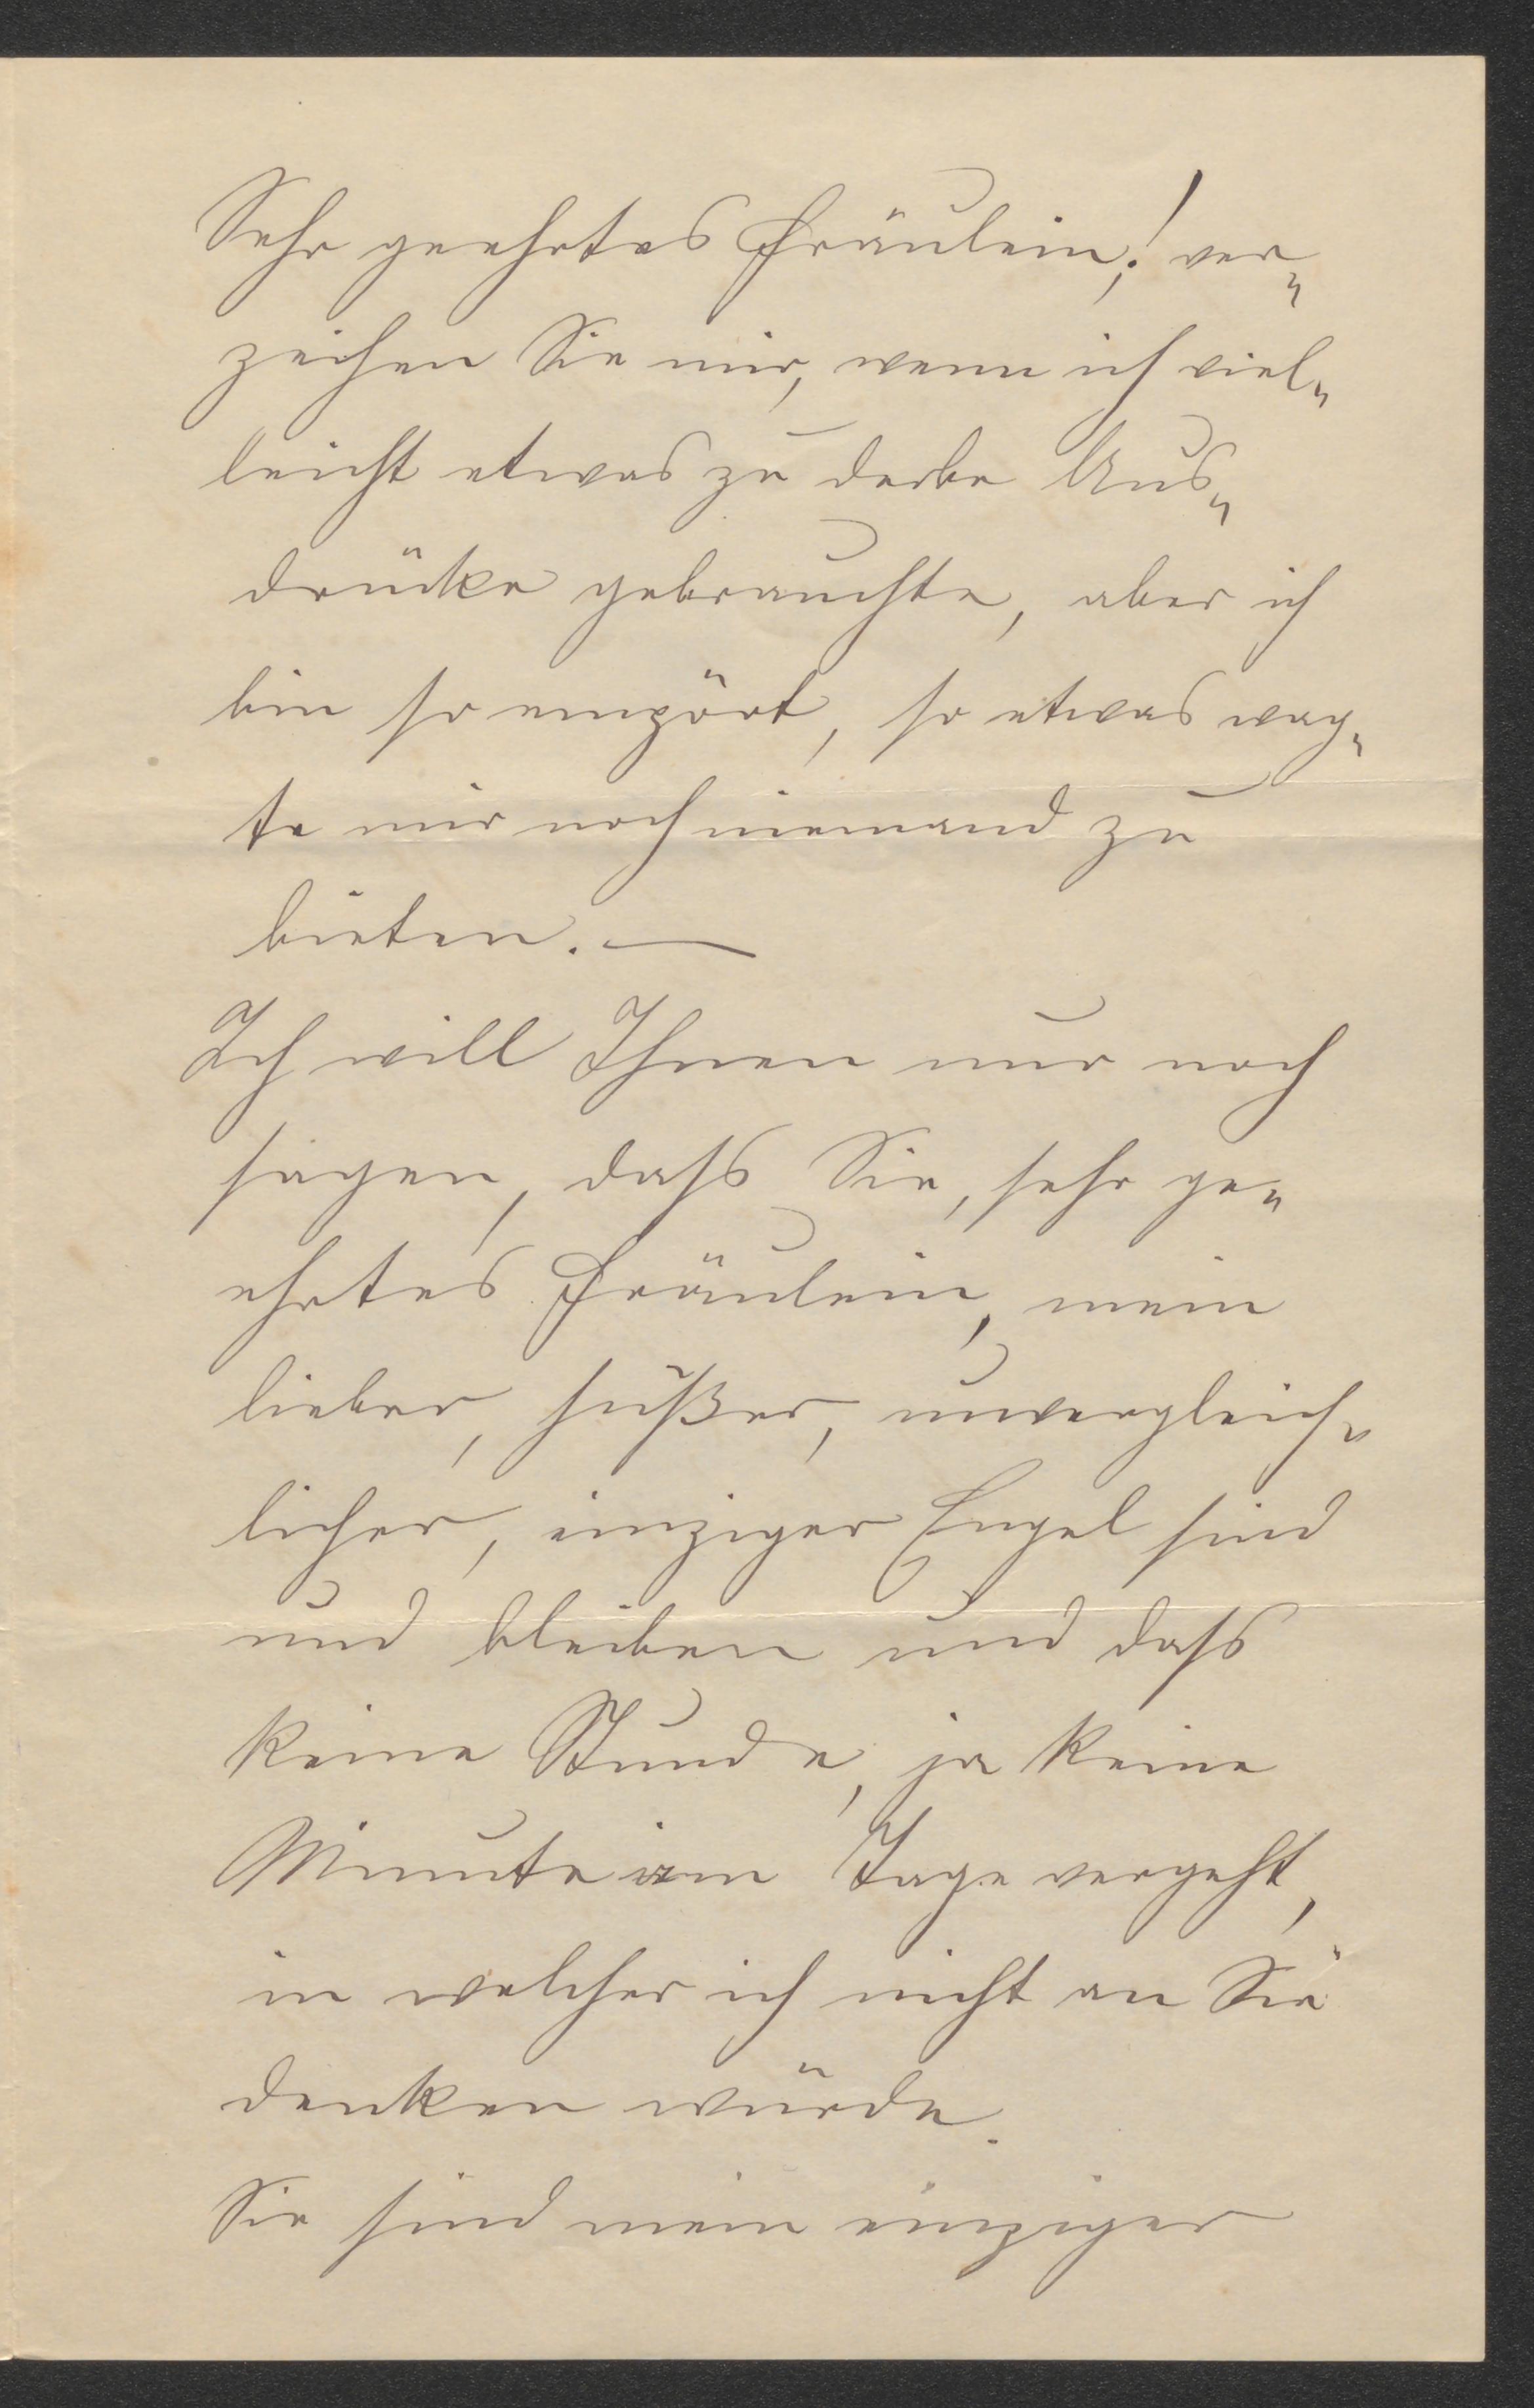 Sehr geehrtes Fräulein! ver-
zeihen Sie mir, wenn ich viel-
leicht etwas zu derbe Aus-
drücke gebrauchte, aber ich
bin so empört, so etwas wag-
te mir noch niemand zu
bieten. —
Ich will Ihnen nur noch
sagen, dass Sie, sehr ge-
ehrtes Fräulein, mein
lieber, süßer, unvergleich-
licher, einziger Engel sind
und bleiben und dass
keine Stunde, ja keine
Minute im Tage vergeht,
in welcher ich nicht an Sie
denken würde.
Sie sind mein einziger